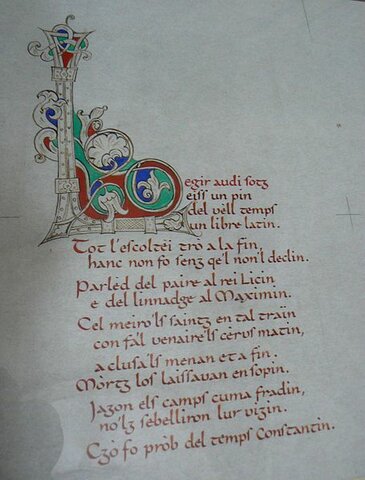 Legir audi sotz
eiss un pin
del vell temps
un libre latin.
Tot l'escoltèi trò a la fin,
hanc non fo senz qe'l non'l declin.
Parlèd del paire al rei Licin
e del linnadge al Maximin.
Cel meiro'ls saintz en tal traïn
con fa'l venaire'ls cèrvs matin,
a clusa'ls menan et a fin.
Mòrtz los laissavan en sopin.
Jazon els camps cuma fradin,
no'lz sebelliron lur vizin.
Czò fo pròb del temps Constantin.